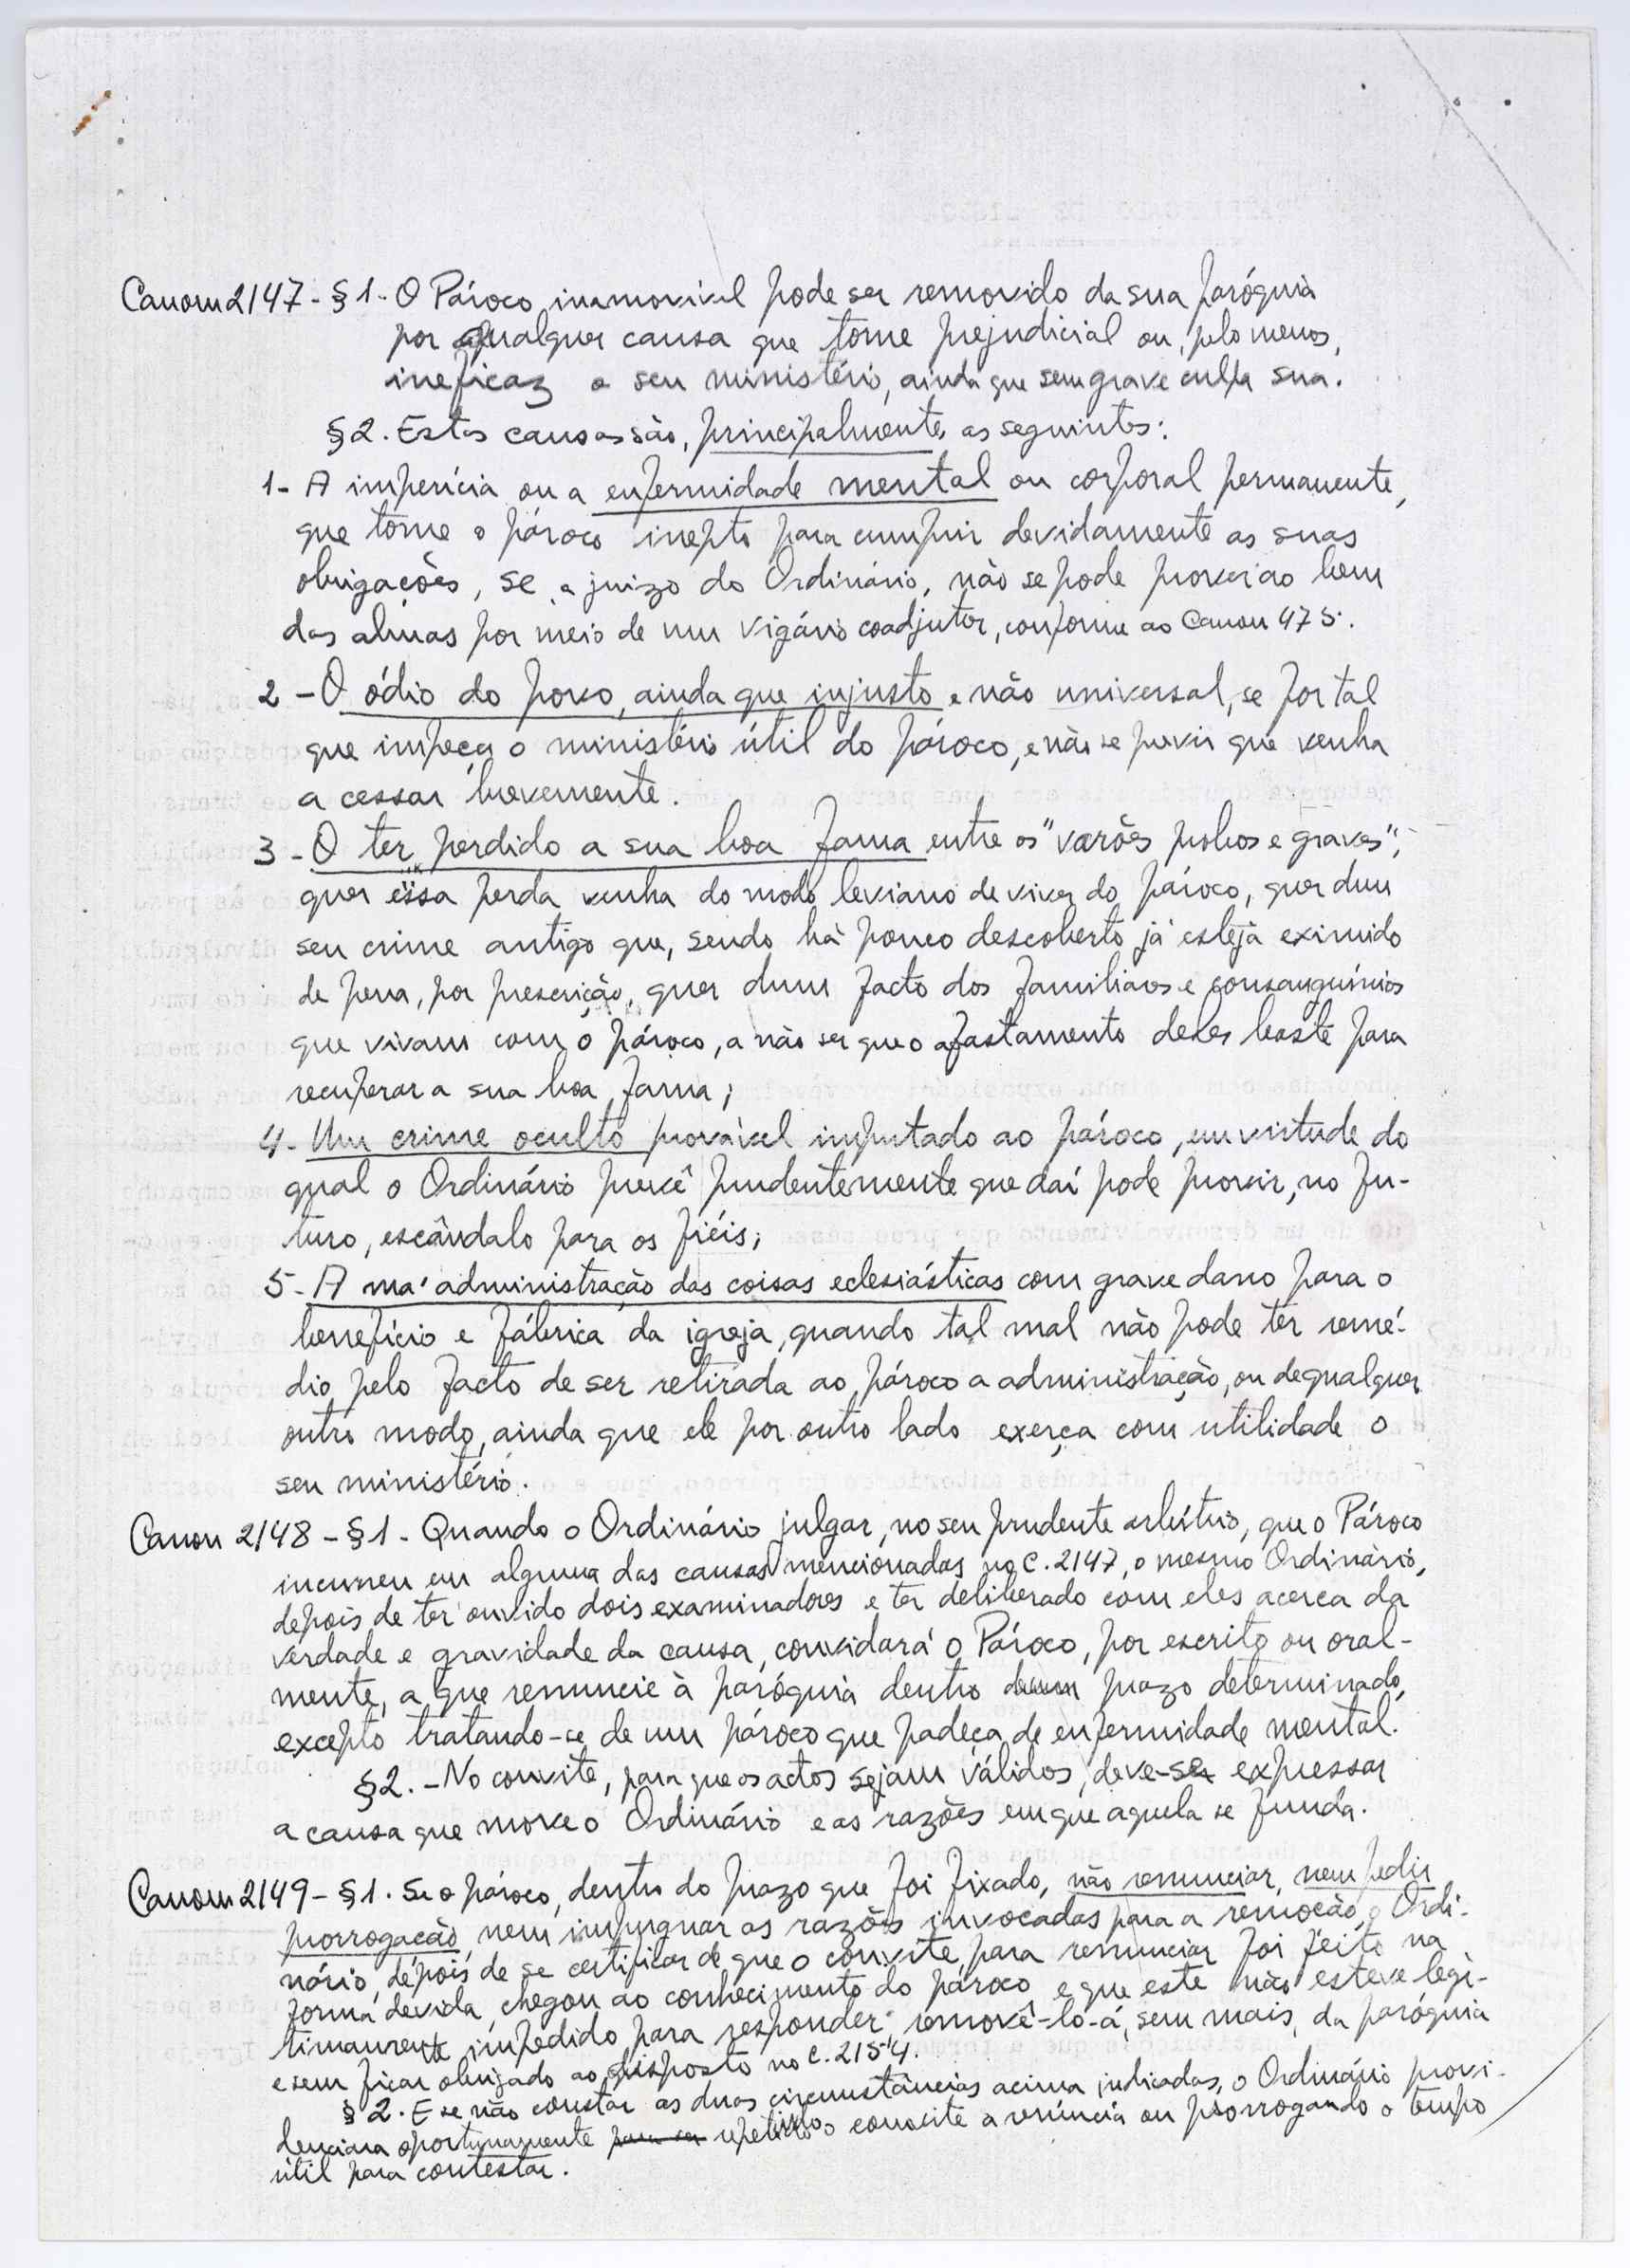 Canon 2147 - § 1. O Pároco inamovível pode ser removido da sua paróquia
por qualquer causa que torne prejudicial ou, pelo menos,
ineficaz o seu ministério, ainda que sem grave culpa sua.
§ 2. Estas causas são, principalmente, as seguintes:
1- A imperícia ou a enfermidade mental ou corporal permanente,
que torne o pároco inepto para cumprir devidamente as suas
obrigações, se, a juizo do Ordinário, não se pode prover ao bem
das almas por meio de um vigário coadjutor, conforme ao Canon 475.
2 - O ódio do povo, ainda que injusto e não universal, se for tal
que impeça o ministério útil do pároco, e não se previr que venha
a cessar brevemente.
3 - O ter perdido a sua boa fama entre os "varões probos e graves",
quer essa perda venha do modo leviano de viver do pároco, quer dum
seu crime antigo que, sendo há pouco descoberto já esteja eximido
de pena, por prescrição, quer dum facto dos familiares e consanguínios
que vivam com o pároco, a não ser que o afastamento deles baste para
recuperar a sua boa fama;
4- Um crime oculto provável imputado ao pároco, em virtude do
qual o Ordinário prevê prudentemente que daí pode provir, no fu-
turo, escândalo para os fiéis;
5- A má administração das coisas eclesiásticas com grave dano para o
benefício e fábrica da igreja, quando tal mal não pode ter remé-
dio pelo facto de ser retirada ao pároco a administração, ou de qualquer
outro modo, ainda que ele por outro lado exerça com utilidade o
seu ministério.
Canon 2148 - § 1 - Quando o Ordinário julgar, no seu prudente arbítrio, que o Pároco
incorreu em alguma das causas mencionadas no C. 2147, o mesmo Ordinário,
depois de ter ouvido dois examinadores e ter deliberado com eles acerca da
verdade e gravidade da causa, convidará o Pároco, por escrito ou oral-
mente, a que renuncie à paróquia dentro dum prazo determinado,
excepto tratando-se de um pároco que padeça de enfermidade mental.
§ 2. - No convite, para que os actos sejam válidos, deve-se expressar
a causa que move o Ordinário e as razões em que aquela se funda.
Canon 2149 - § 1. Se o pároco, dentro do prazo que foi fixado, não renunciar, nem pedir
prorrogação, nem impugnar as razões invocadas para a remoção, o Ordi-
nário, depois de se certificar de que o convite para renunciar foi feito na
forma devida, chegou ao conhecimento do pároco e que este não esteve legi-
timamente impedido para responder, removê-lo-á, sem mais, da paróquia
e sem ficar obrigado ao disposto no C. 2154.
§ 2. E se não constar as duas circunstâncias acima indicadas, o Ordinário provi-
denciara oportunamente para ser repetindo o convite a renúncia ou prorrogando o tempo
útil para contestar.